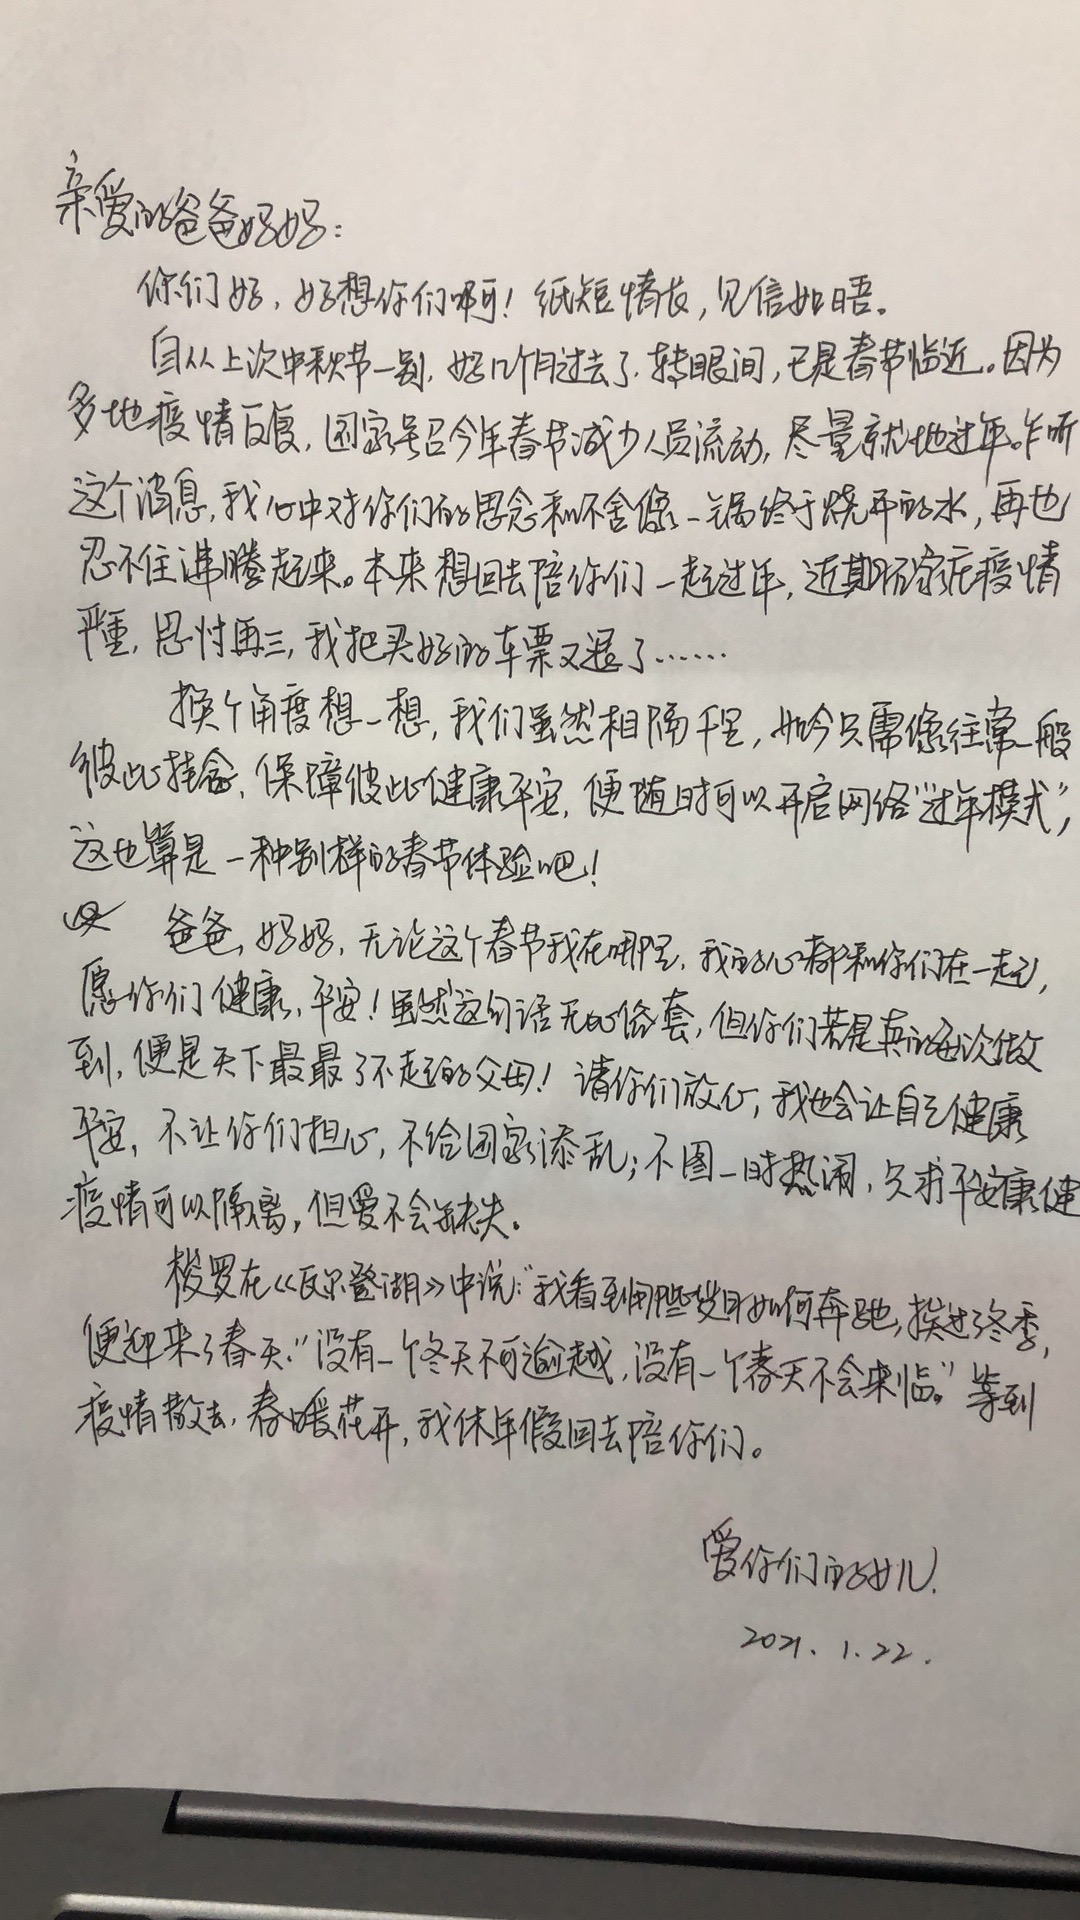 亲爱的爸爸妈妈：
你们好，好想你们啊！纸短情长，见信如晤。
自从上次中秋节一别，好几个月过去了，转眼间，已是春节临近。因为
多地疫情反复，国家号召今年春节减少人员流动，尽量就地过年。乍听
这个消息，我心中对你们的思念和不舍像一锅终于烧开的水，再也
忍不住沸腾起来。本来想回去陪你们一起过年，近期石家庄疫情
严重，思忖再三，我把买好的车票又退了……
换个角度想一想，我们虽然相隔千里，如今只需像往常一般
彼此挂念，保障彼此健康平安，便随时可以开启网络“过年模式”，
这也算是一种别样的春节体验吧！
爸爸，妈妈，无论这个春节我在哪里，我的心都和你们在一起，
愿你们健康，平安！虽然这句话无比俗套，但你们若是真的每次做
到，便是天下最最了不起的父母！请你们放心，我也会让自己健康
平安，不让你们担心，不给国家添乱；不图一时热闹，只求平安康健
疫情可以隔离，但爱不会缺失。
梭罗在《瓦尔登湖》中说：“我看到那些岁月如何奔驰，挨过了冬季，
便迎来了春天。”没有一个冬天不可逾越，没有一个春天不会来临。”等到
疫情散去，春暖花开，我休年假回去陪你们。
爱你们的女儿.
2021.1.22.